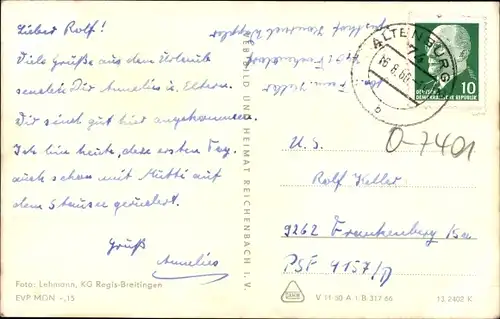 Lieber Rolf!
Viele Grüße aus dem Urlaub
senden Dir Annelies u. Eltern.
Wir sind gut hier angekommen.
Ich bin heute, dem ersten Tag,
auch schon mit Mutti auf
dem Stausee gerudert.
Gruß
Annelies
Foto: Lehmann, KG Regis-Breitingen
EVP MDN -,15
BILD UND HEIMAT REICHENBACH I. V.
ALTENBURG
16.8.66
b
10
DEUTSCHE
DEMOKRATISCHE REPUBLIK
O-7401
U.S.
Rolf Keller
9262 Frankenberg
PSF 4157/D
V 11 50 A 1/B 317 66
13 2402 K